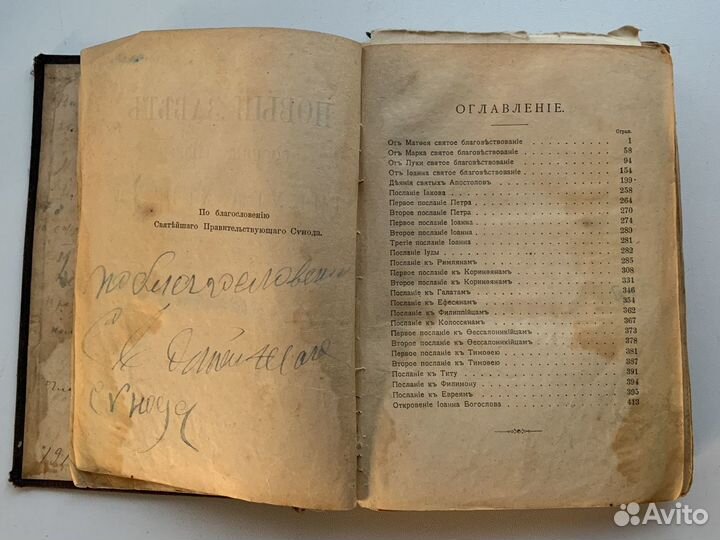 По благословенію
Святѣйшаго Правительствующаго Сѵнода.
по благословению
Святейшаго
синода
ОГЛАВЛЕНІЕ.
Стран.
Отъ Матѳея святое благовѣствованіе 1
Отъ Марка святое благовѣствованіе 58
Отъ Луки святое благовѣствованіе 94
Отъ Іоанна святое благовѣствованіе 154
Дѣянія святыхъ Апостоловъ 199
Посланіе Іакова 258
Первое посланіе Петра 264
Второе посланіе Петра 270
Первое посланіе Іоанна 274
Второе посланіе Іоанна 280
Третіе посланіе Іоанна 281
Посланіе Іуды 282
Посланіе къ Римлянамъ 285
Первое посланіе къ Коринѳянамъ 308
Второе посланіе къ Коринѳянамъ 331
Посланіе къ Галатамъ 346
Посланіе къ Ефесянамъ 354
Посланіе къ Филиппійцамъ 362
Посланіе къ Колоссянамъ 367
Первое посланіе къ Ѳессалоникійцамъ 373
Второе посланіе къ Ѳессалоникійцамъ 378
Первое посланіе къ Тимоѳею 381
Второе посланіе къ Тимоѳею 387
Посланіе къ Титу 391
Посланіе къ Филимону 394
Посланіе къ Евреямъ 395
Откровеніе Іоанна Богослова 413
Avito